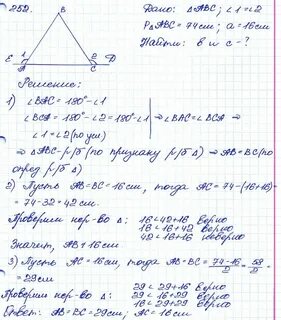 252.
B
E 1 A C 2 D
Дано: △ABC; ∠1=∠2
P△ABC = 74см; a=16см
Найти: в и с - ?
Решение:
1) ∠BAC = 180° - ∠1
∠BCA = 180° - ∠2 = 180° - ∠1 ⇒ ∠BAC = ∠BCA ⇒
∠1 = ∠2 (по усл)
⇒ △ABC - р/б (по признаку р/б △) ⇒ AB = BC (по
опред р/б △)
2) Пусть AB = BC = 16см, тогда AC = 74-(16+16)=
= 74-32 = 42см.
Проверим нер-во △: 16<42+16 верно
16<16+42 верно
42<16+16 неверно
Значит, AB ≠ 16см
3) Пусть AC = 16см, тогда AB = BC = 74-16/2 = 58/2 =
= 29см
Проверим нер-во △: 29<29+16 верно
29<16+29 верно
16<29+29 верно
Ответ: AB = BC = 29см, AC = 16см